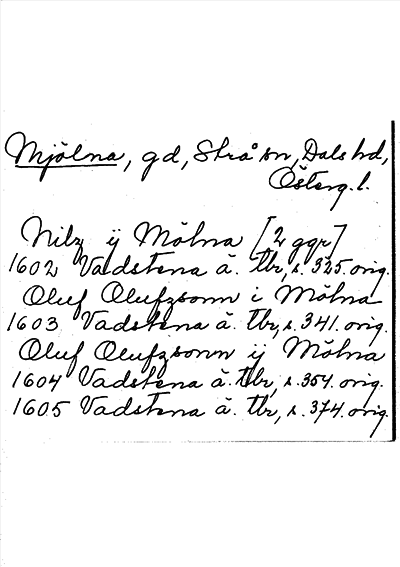 Mjölna, gd, Strå sn, Dals hd,
Österg. l.
Nilz ij Mölna [2 ggr]
1602 Vadstena ä. tbr, s. 325. orig.
Oluf Olufzsonn i Mölna
1603 Vadstena ä. tbr, s. 341. orig.
Oluf Olufzsonn ij Mölna
1604 Vadstena ä. tbr, s. 354. orig.
1605 Vadstena ä. tbr, s. 374. orig.